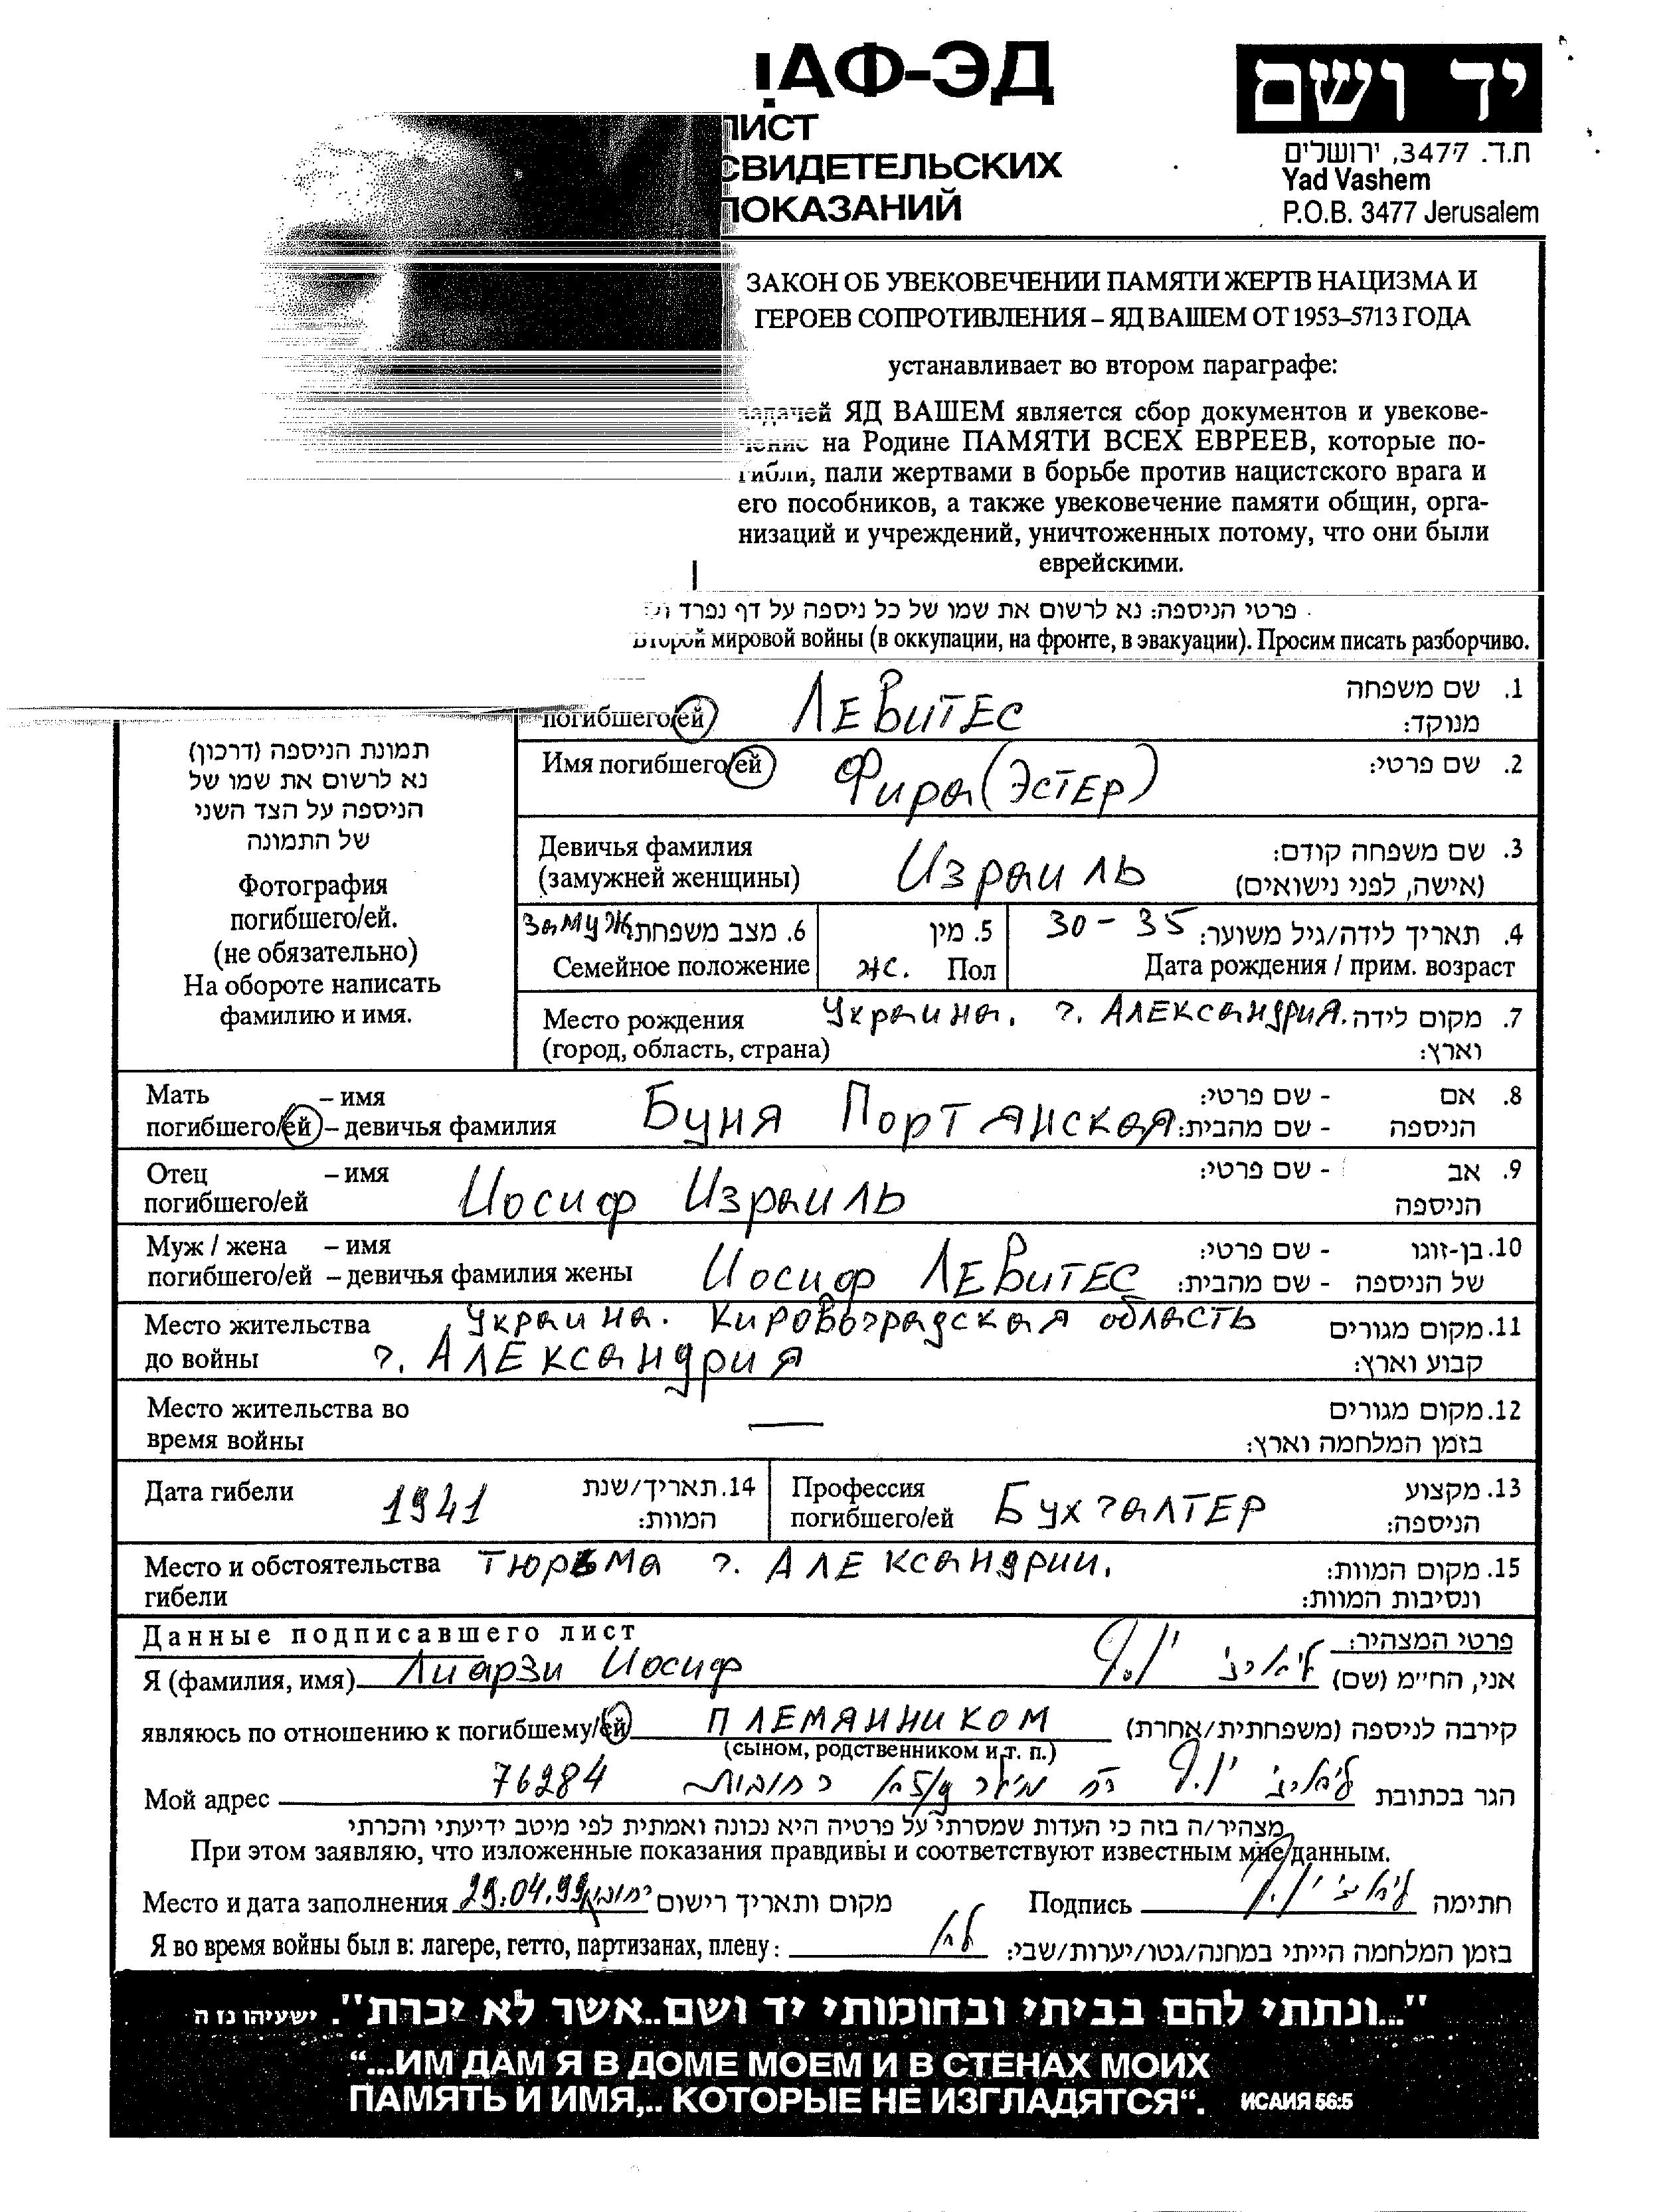 ДАФ-ЭД
ЛИСТ
СВИДЕТЕЛЬСКИХ
ПОКАЗАНИЙ
יד ושם
ת.ד. 3477, ירושלים
Yad Vashem
P.O.B. 3477 Jerusalem
ЗАКОН ОБ УВЕКОВЕЧЕНИИ ПАМЯТИ ЖЕРТВ НАЦИЗМА И
ГЕРОЕВ СОПРОТИВЛЕНИЯ – ЯД ВАШЕМ ОТ 1953–5713 ГОДА
устанавливает во втором параграфе:
задачей ЯД ВАШЕМ является сбор документов и увекове-
чение на Родине ПАМЯТИ ВСЕХ ЕВРЕЕВ, которые по-
гибли, пали жертвами в борьбе против нацистского врага и
его пособников, а также увековечение памяти общин, орга-
низаций и учреждений, уничтоженных потому, что они были
еврейскими.
פרטי הניספה: נא לרשום את שמו של כל ניספה על דף נפרד
Второй мировой войны (в оккупации, на фронте, в эвакуации). Просим писать разборчиво.
погибшего/ей ЛЕВИТЕС 1. שם משפחה
מנוקד:
תמונת הניספה (דרכון)
נא לרשום את שמו של
הניספה על הצד השני
של התמונה
Фотография
погибшего/ей.
(не обязательно)
На обороте написать
фамилию и имя.
Имя погибшего/ей Фира (ЭСТЕР) 2. שם פרטי:
Девичья фамилия Израиль 3. שם משפחה קודם:
(замужней женщины) (אישה, לפני נישואים)
замуж 6. מצב משפחתי 5. מין 30 – 35 4. תאריך לידה/גיל משוער:
Семейное положение ж. Пол Дата рождения / прим. возраст
Место рождения Украина. г. АЛЕКСАНДРИЯ. 7. מקום לידה
(город, область, страна) וארץ:
Мать – имя Буня Портянская 8. אם - שם פרטי:
погибшего/ей – девичья фамилия הניספה - שם מהבית:
Отец – имя Иосиф Израиль 9. אב - שם פרטי:
погибшего/ей הניספה
Муж / жена – имя Иосиф ЛЕВИТЕС 10. בן-זוגו - שם פרטי:
погибшего/ей – девичья фамилия жены של הניספה - שם מהבית:
Место жительства Украина. Кировоградская область 11. מקום מגורים
до войны г. АЛЕКСАНДРИЯ קבוע וארץ:
Место жительства во — 12. מקום מגורים
время войны בזמן המלחמה וארץ:
Дата гибели 1941 14. תאריך/שנת המוות:
Профессия погибшего/ей БУХГАЛТЕР 13. מקצוע הניספה:
Место и обстоятельства ТЮРЬМА г. АЛЕКСАНДРИИ. 15. מקום המוות:
гибели ונסיבות המוות:
Данные подписавшего лист פרטי המצהיר:
Я (фамилия, имя) Лиарзи Иосиф אני, הח״מ (שם)
являюсь по отношению к погибшему/ей ПЛЕМЯННИКОМ קירבה לניספה (משפחתית/אחרת)
(сыном, родственником и т. п.)
Мой адрес 76284 רחובות הגר בכתובת
מצהיר/ה בזה כי העדות שמסרתי על פרטיה היא נכונה ואמתית לפי מיטב ידיעתי והכרתי
При этом заявляю, что изложенные показания правдивы и соответствуют известным мне данным.
Место и дата заполнения 29.04.99 מקום ותאריך רישום Подпись חתימה
Я во время войны был в: лагере, гетто, партизанах, плену: לא בזמן המלחמה הייתי במחנה/גטו/יערות/שבי:
"...ונתתי להם בביתי ובחומותי יד ושם..אשר לא יכרת". ישעיהו נז ה
“...ИМ ДАМ Я В ДОМЕ МОЕМ И В СТЕНАХ МОИХ
ПАМЯТЬ И ИМЯ,.. КОТОРЫЕ НЕ ИЗГЛАДЯТСЯ“. ИСАИЯ 56:5